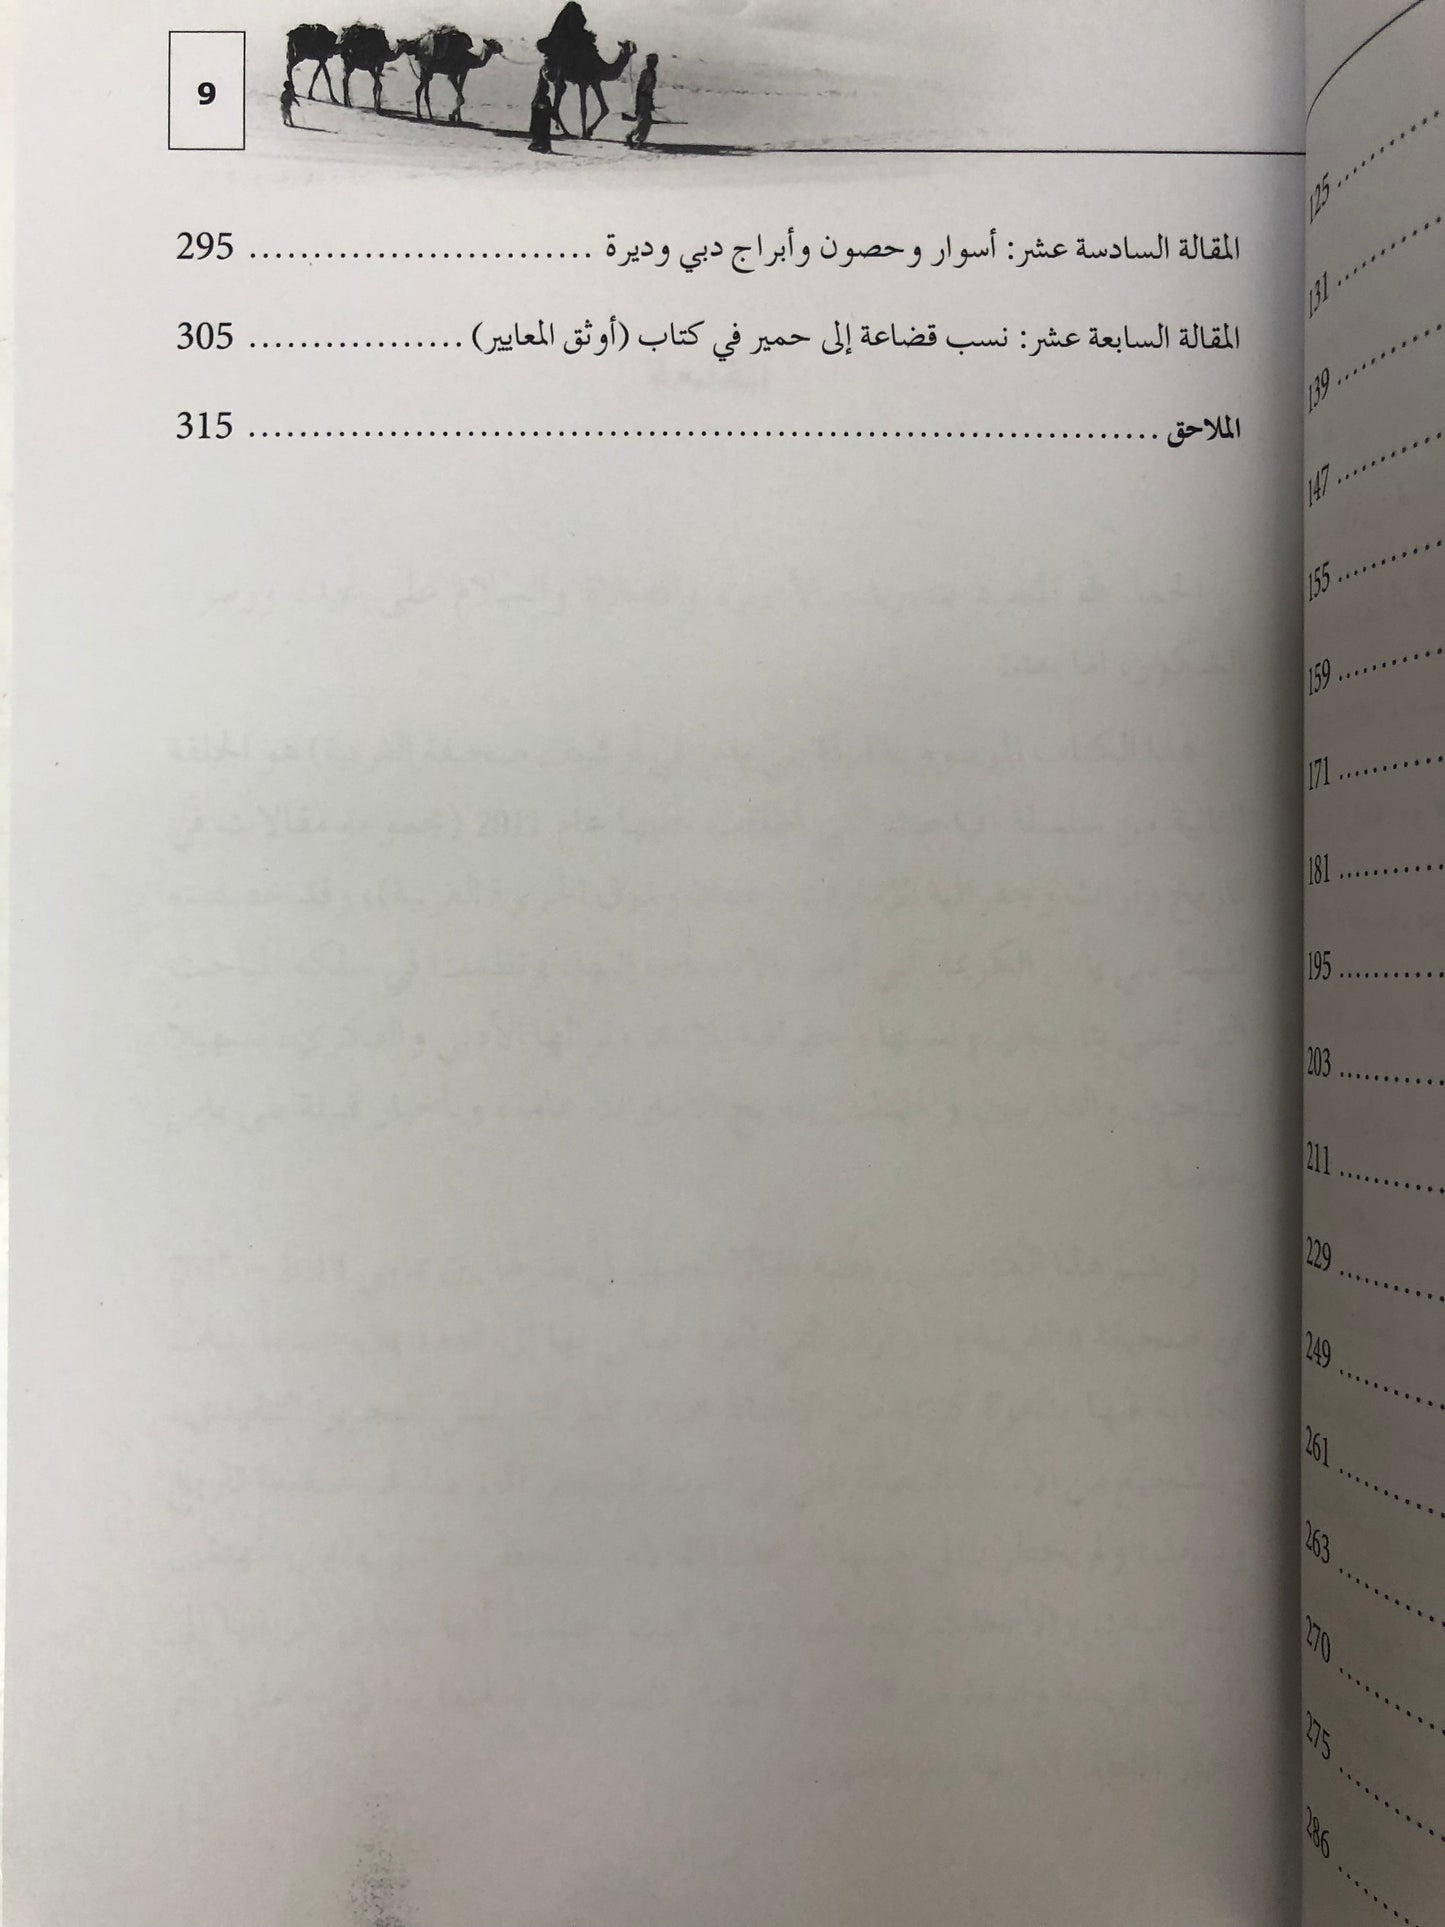 9
المقالة السادسة عشر: أسوار وحصون وأبراج دبي وديرة ........................... 295
المقالة السابعة عشر: نسب قضاعة إلى حمير في كتاب (أوثق المعايير) ................. 305
الملاحق ....................................................................... 315
125 ..........
131 ..........
139 ..........
147 ..........
155 ..........
159 ..........
171 ..........
181 ..........
195 ..........
203 ..........
211 ..........
229 ..........
249 ..........
261 ..........
263 ..........
270 ..........
275 ..........
286 ..........